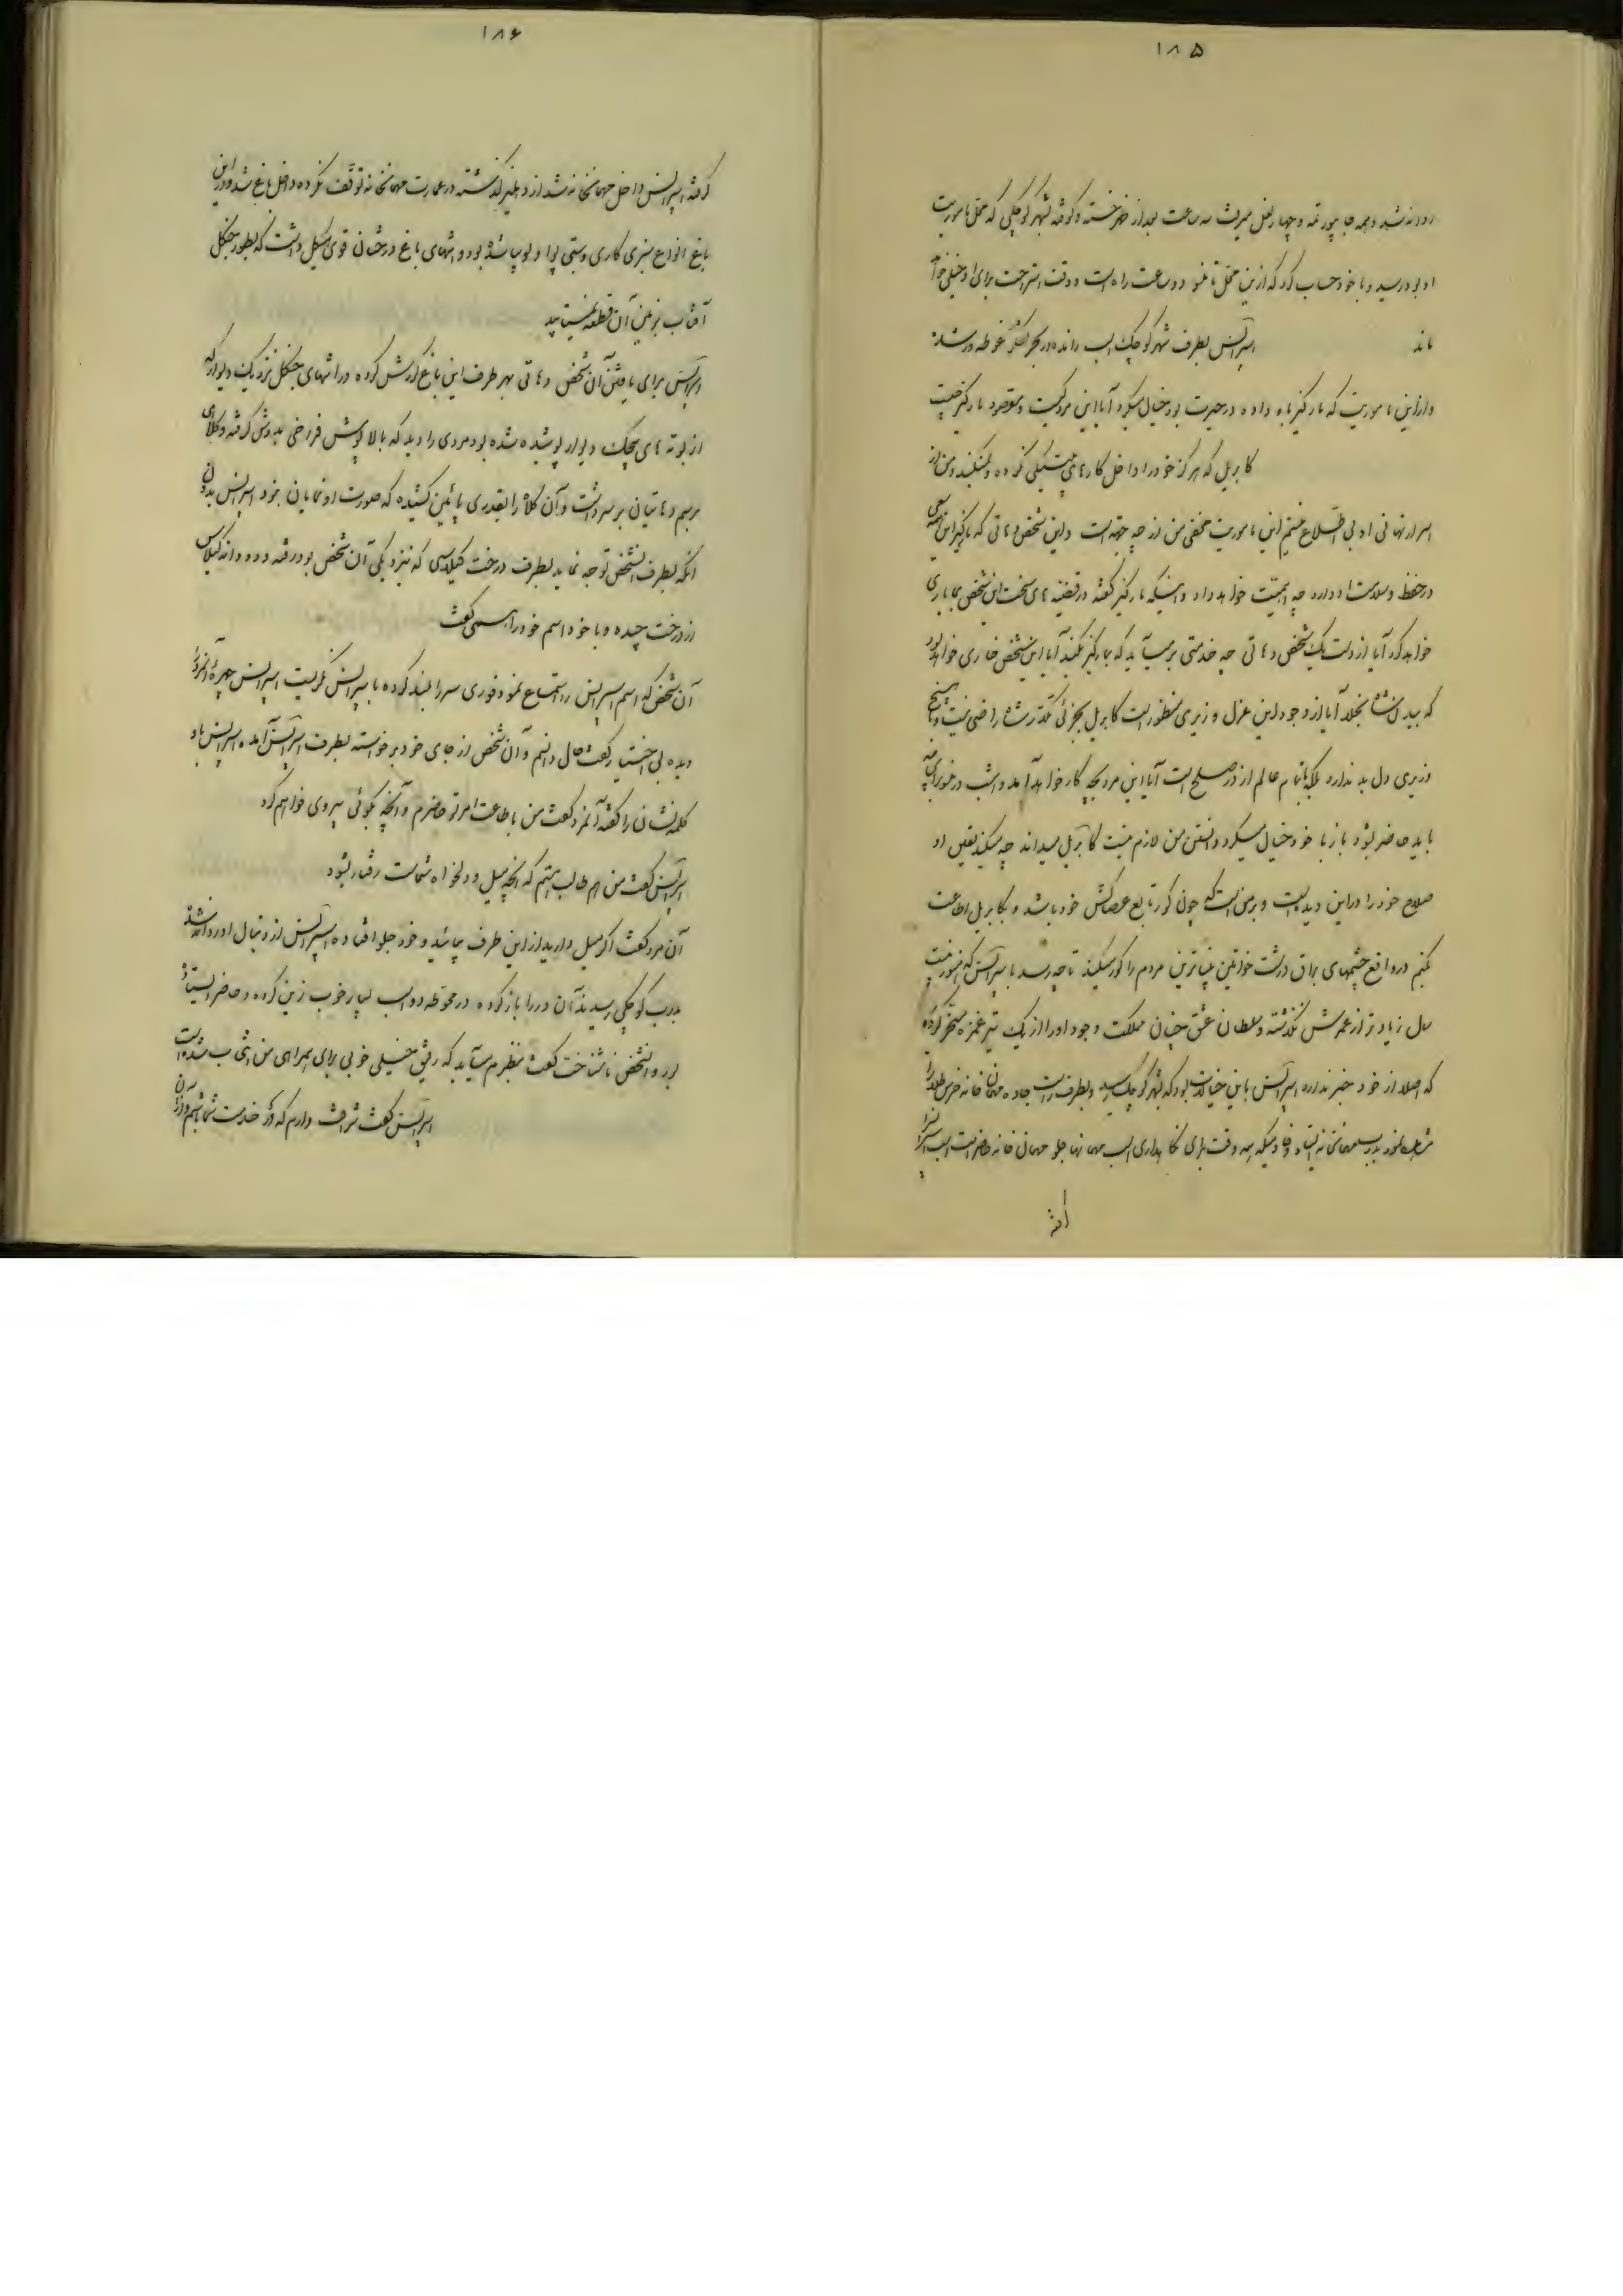 ۱۸۵
روانه شد و همه جا یورتمه و چهار نعل میرفت سه ساعت بعد از ظهر خسته و کوفته بشهر کوچکی که محل ماموریت
او بود رسید و با خود حساب کرد که از این محل تا دو ساعت راه است و وقت استراحت برای او خیلی خواهد
ماند اسپرانس بطرف شهر کوچک اسب رانده در بحر تفکر غوطه ور شده
و از این ماموریت که مارکیز باو داده در حیرت بود خیال میکرد آیا این مرد کیست و مقصود مارکیز چیست
کابریل که هرگز خود را داخل کارهای پلتیکی نکرده و نمیکند و من از
اسرار نهانی او بی اطلاع نیستم این ماموریت مخفی من از چه جهة است و این شخص دهاتی که مارکیز این همه سعی
در حفظ و سلامت او دارد چه اهمیت خواهد داد و اینکه مارکیز گفته در قضیه های سخت این شخص بما یاری
خواهد کرد آیا از دست یک شخص دهاتی چه خدمتی بر میآید که بمارکیز بکند آیا این شخص خاری خواهد بود
که بپای دشمنان بخلد آیا از وجود این عزل وزیری منظور است کابریل بجزئی تکدر شاه راضی نیست و با هیچ
وزیری دل بد ندارد بلکه با تمام عالم از در صلح است آیا این مرد بچه کار خواهد آمد و امشب در برای چه
باید حاضر بشود باز با خود خیال میکرد دانستن من لازم نیست کابریل میداند چه میکند یقین او
صلاح خود را در این دیده است و بر من است که چون کور تابع عصاکش خود باشد و بکابریل اطاعت
بکنم در واقع چشمهای براق درشت خواتین بیناترین مردم را کور میکند تا چه رسد باسپرانس که هنوز بیست
سال زیادتر از عمرش نگذشته و سلطان عشق چنان مملکت وجود او را از یک تیر غمزه مسخر کرده
که اصلا از خود خبر ندارد اسپرانس باین خیالات بود که بشهر کوچک رسید و بطرف راست جاده مهمان خانه خرس طلا را
مشاهده نمود بدرب مهمانخانه ایستاد و خادمیکه همه وقت برای نگاهداری اسب مهمانها جلو مهمان خانه حاضر است اسب اسپرانس را
گرفته
۱۸۶
گرفته اسپرانس داخل مهمانخانه شد از دهلیز گذشته در عمارت مهمانخانه توقف نکرده داخل باغ شد و در این
باغ انواع سبزی کاری و بستی لوبیا شده بود و انتهای باغ درختان قوی هیکل داشت که بطور جنگل
آفتاب بزمین آن قطعه نمیتابید
اسپرانس برای یافتن آن شخص دهاتی بهر طرف این باغ گردش کرده در انتهای جنگل نزدیک دیوار که
از بوته های پیچک دیوار پوشیده شده بود مردی را دید که بالا پوش فراخی بدوش گرفته و کلاهی
برسم دهاتیان بر سر داشت و آن کلاه را بقدری پائین کشیده که صورت او نمایان نبود اسپرانس بدون
آنکه بطرف آنشخص توجه نماید بطرف درخت گیلاسی که نزدیکی آن شخص بود رفته و ده دانه گیلاس
از درخت چیده و با خود اسم خود را آهسته گفت
آن شخص که اسم اسپرانس را استماع نمود فوری سر را بلند کرده باسپرانس نگریست اسپرانس چهره آنمرد را
دیده بی اختیار گفت حال دانستم و آن شخص از جای خود برخواسته بطرف اسپرانس آمده اسپرانس باو
کلمه نشان را گفته آنمرد گفت من باطاعت امر تو حاضرم و آنچه بگوئی پیروی خواهم کرد
اسپرانس گفت من هم طالب هستم که آنچه میل و دلخواه شماست رفتار بشود
آن مرد گفت اگر میل دارید از این طرف بیائید و خود جلو افتاده اسپرانس از دنبال او روانه شده
بدرب کوچکی رسیدند آن در را باز کرده در محوطه دو اسب بسیار خوب زین کرده و حاضر ایستاده
بود و آنشخص ناشناخت گفت بنظرم میآید که رفیق خیلی خوبی برای همراهی من انتخاب شده است
اسپرانس گفت شرافت دارم که در خدمت شما باشم و از آن